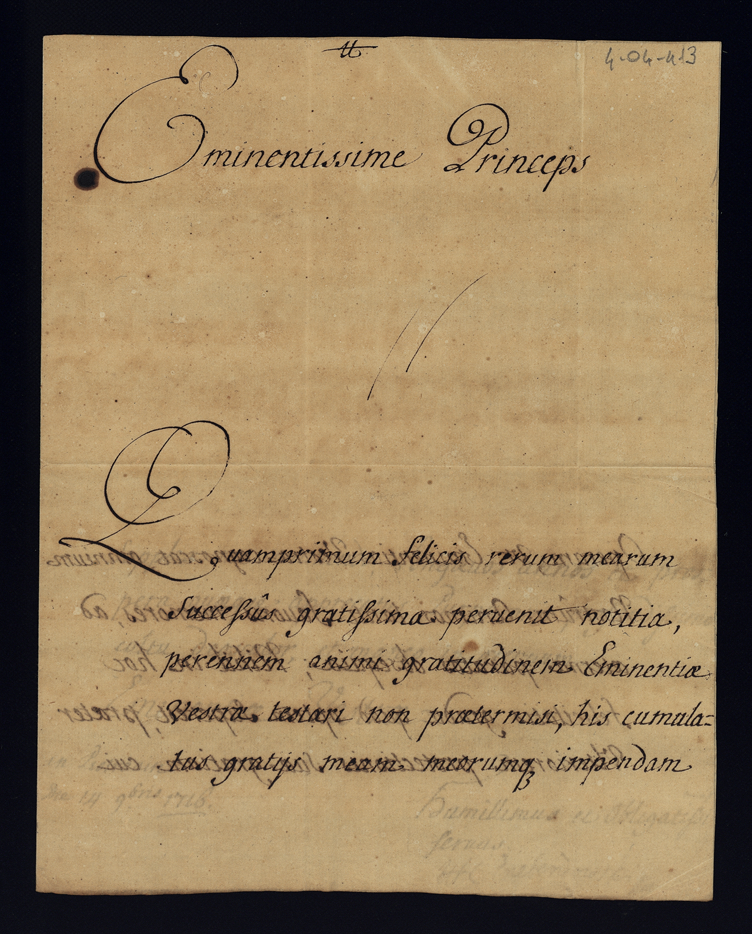 4-04-413
Eminentissime Princeps
Quamprimum felicis rerum mearum
Successûs gratissima peruenit notitia,
perennem animi gratitudinem Eminentiæ
Vestræ testari non prætermisi, his cumula=
tus gratijs meam meorumq3 impendam